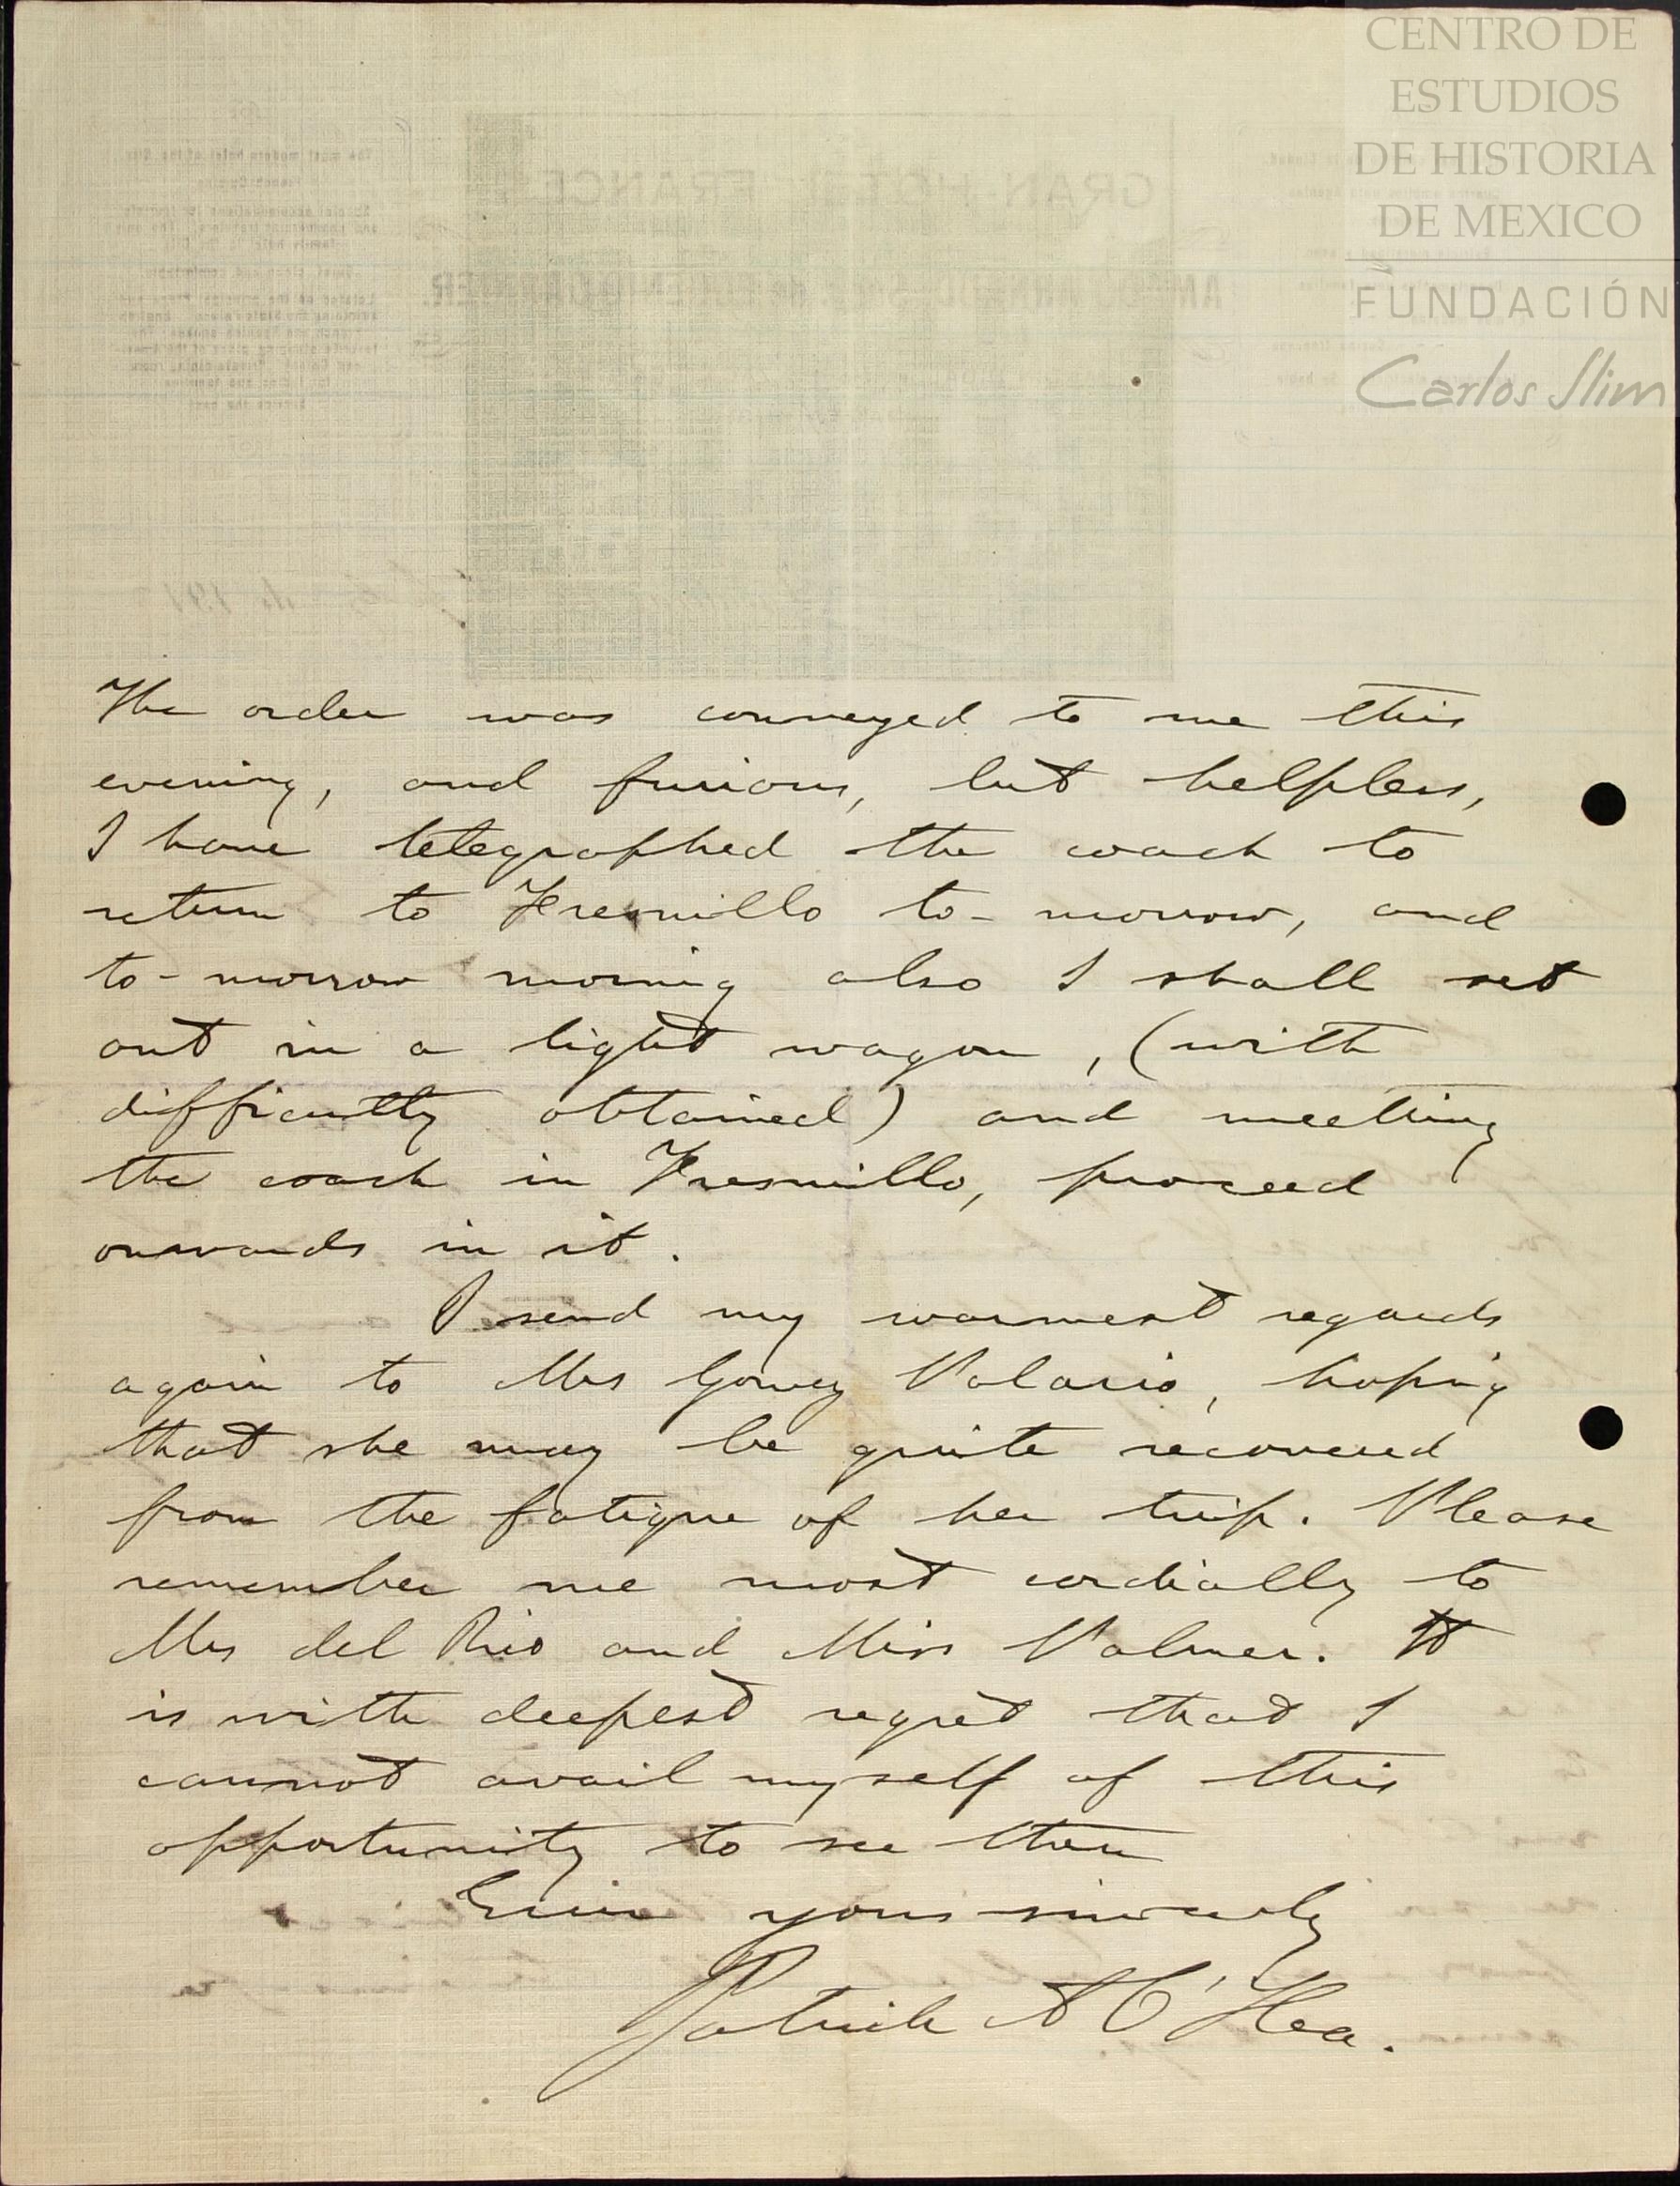 CENTRO DE
ESTUDIOS
DE HISTORIA
DE MEXICO
FUNDACIÓN
Carlos Slim
GRAN HOTEL FRANCES
The order was conveyed to me this
evening, and furious, but helpless,
I have telegraphed the coach to
return to Fresnillo to-morrow, and
to-morrow morning also I shall set
out in a light wagon, (with
difficultly obtained) and meeting
the coach in Fresnillo, proceed
onwards in it.
I send my warmest regards
again to Mrs Gomez Palacio, hoping
that she may be quite recovered
from the fatigue of her trip. Please
remember me most cordially to
Mrs del Rio and Miss Palmer. It
is with deepest regret that I
cannot avail myself of this
opportunity to see them
Ever yours sincerely
Patrick A O'Hea.